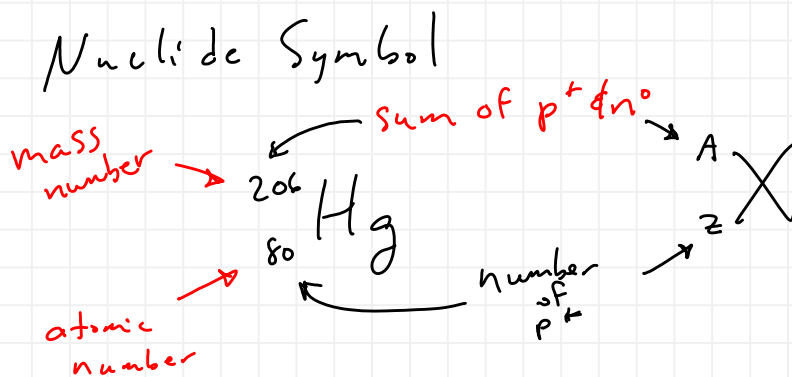 Nuclide Symbol
sum of p⁺ & n⁰
mass
number
206
Hg
80
A
Z
X
number
of
p⁺
atomic
number